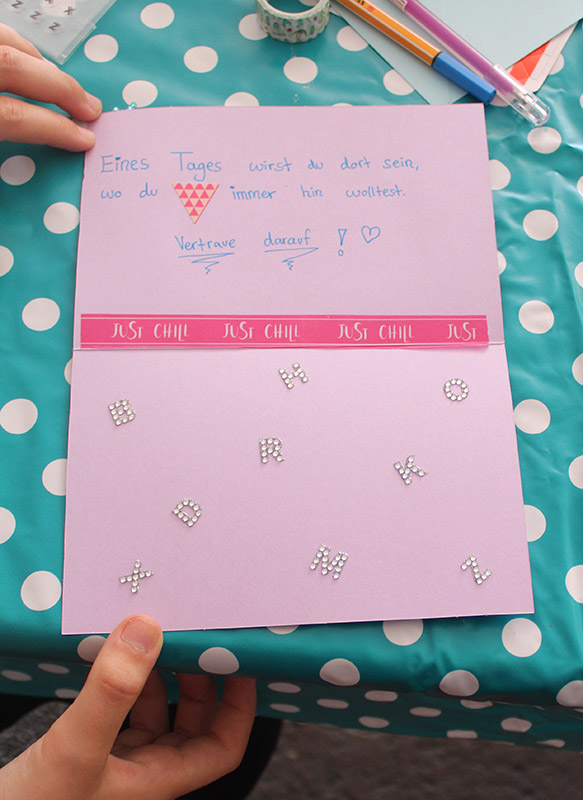 Eines Tages wirst du dort sein,
wo du immer hin wolltest.
Vertraue darauf !
JUST CHILL JUST CHILL JUST CHILL JUST
H
B O
R K
D
X M Z